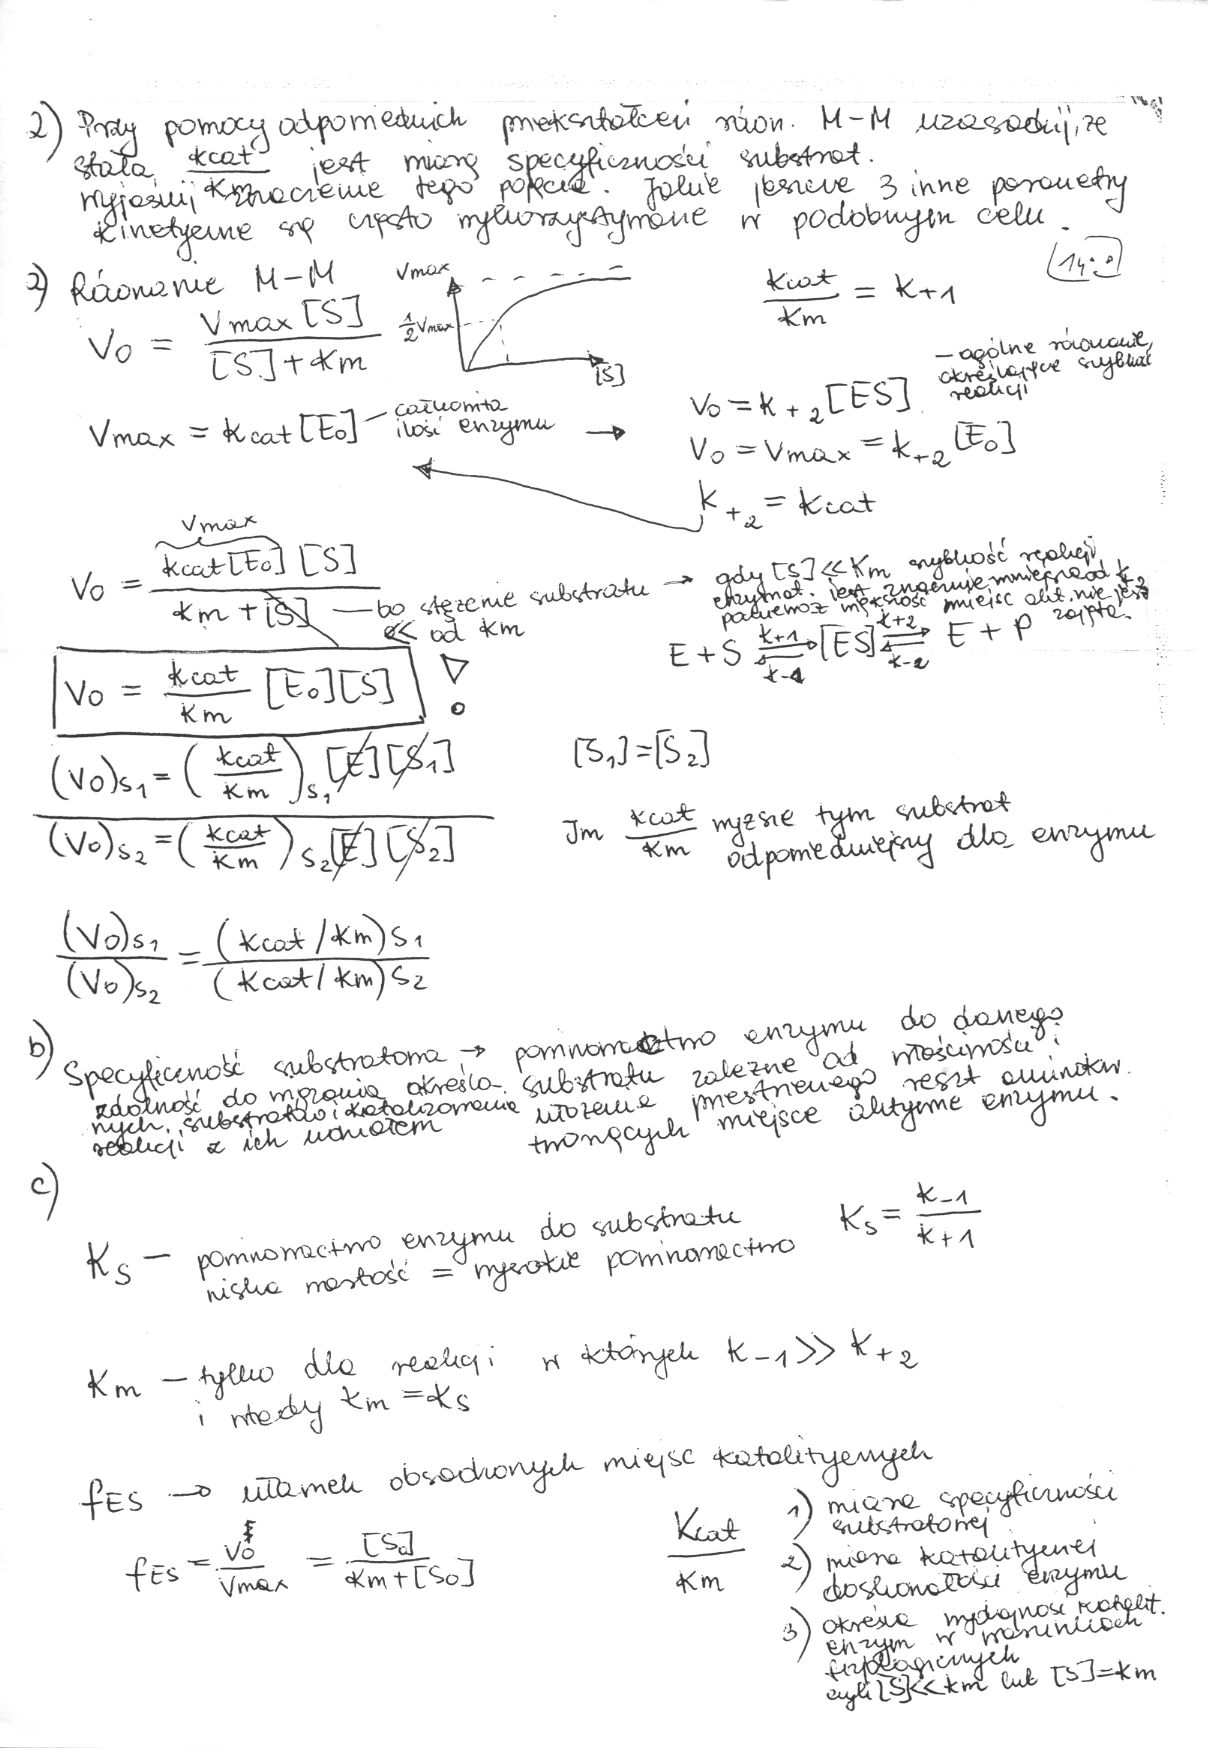 2) Przy pomocy odpowiednich przekształceń równ. M-M uzasadnij, że
stała kcat/Km jest miarą specyficzności substrat.
Wyjaśnij znaczenie tego pojęcia. Jakie jeszcze 3 inne parametry
kinetyczne są często wykorzystywane w podobnym celu.
14.
2) Równanie M-M
Vmax
½Vmax
[S]
kcat/Km = k+1
V0 = Vmax[S]/[S]+Km
V0 = k+2[ES] – ogólne równanie, określające szybkość reakcji
Vmax = kcat[E0] – całkowita ilość enzymu →
V0 = Vmax = k+2[E0]
k+2 = kcat
Vmax
V0 = kcat[E0][S]/Km+[S] – bo stężenie substratu << od Km
→ gdy [S] << Km szybkość reakcji
enzymat. jest znacznie mniejsza od k2
ponieważ większość miejsc akt. nie jest
zajęta.
E + S k+1 k-1 [ES] k+2 k-2 E + P
V0 = kcat/Km [E0][S] !
(V0)S1 = (kcat/Km)S1 [E][S1]
[S1]=[S2]
(V0)S2 = (kcat/Km)S2 [E][S2]
Im kcat/Km wyższe tym substrat
odpowiedniejszy dla enzymu
(V0)S1/(V0)S2 = (kcat/Km)S1/(kcat/Km)S2
b) Specyficzność substratowa → powinowactwo enzymu do danego
substratu zależne od właściwości i
ułożenia przestrzennego reszt aminokw.
tworzących miejsce aktywne enzymu.
zdolność do wiązania określo
nych substratów i katalizowania
reakcji z ich udziałem
c)
KS – powinowactwo enzymu do substratu
niska wartość = wysokie powinowactwo
KS = k-1/k+1
Km – tylko dla reakcji w których k-1 >> k+2
i wtedy Km = KS
fES → ułamek obsadzonych miejsc katalitycznych
fES = V0/Vmax = [S0]/Km+[S0]
Kcat/Km
1) miara specyficzności
substratowej
2) miara katalitycznej
doskonałości enzymu
3) określa wydajność katalit.
enzym w warunkach
fizjologicznych
czyli [S]<<Km lub [S]=Km